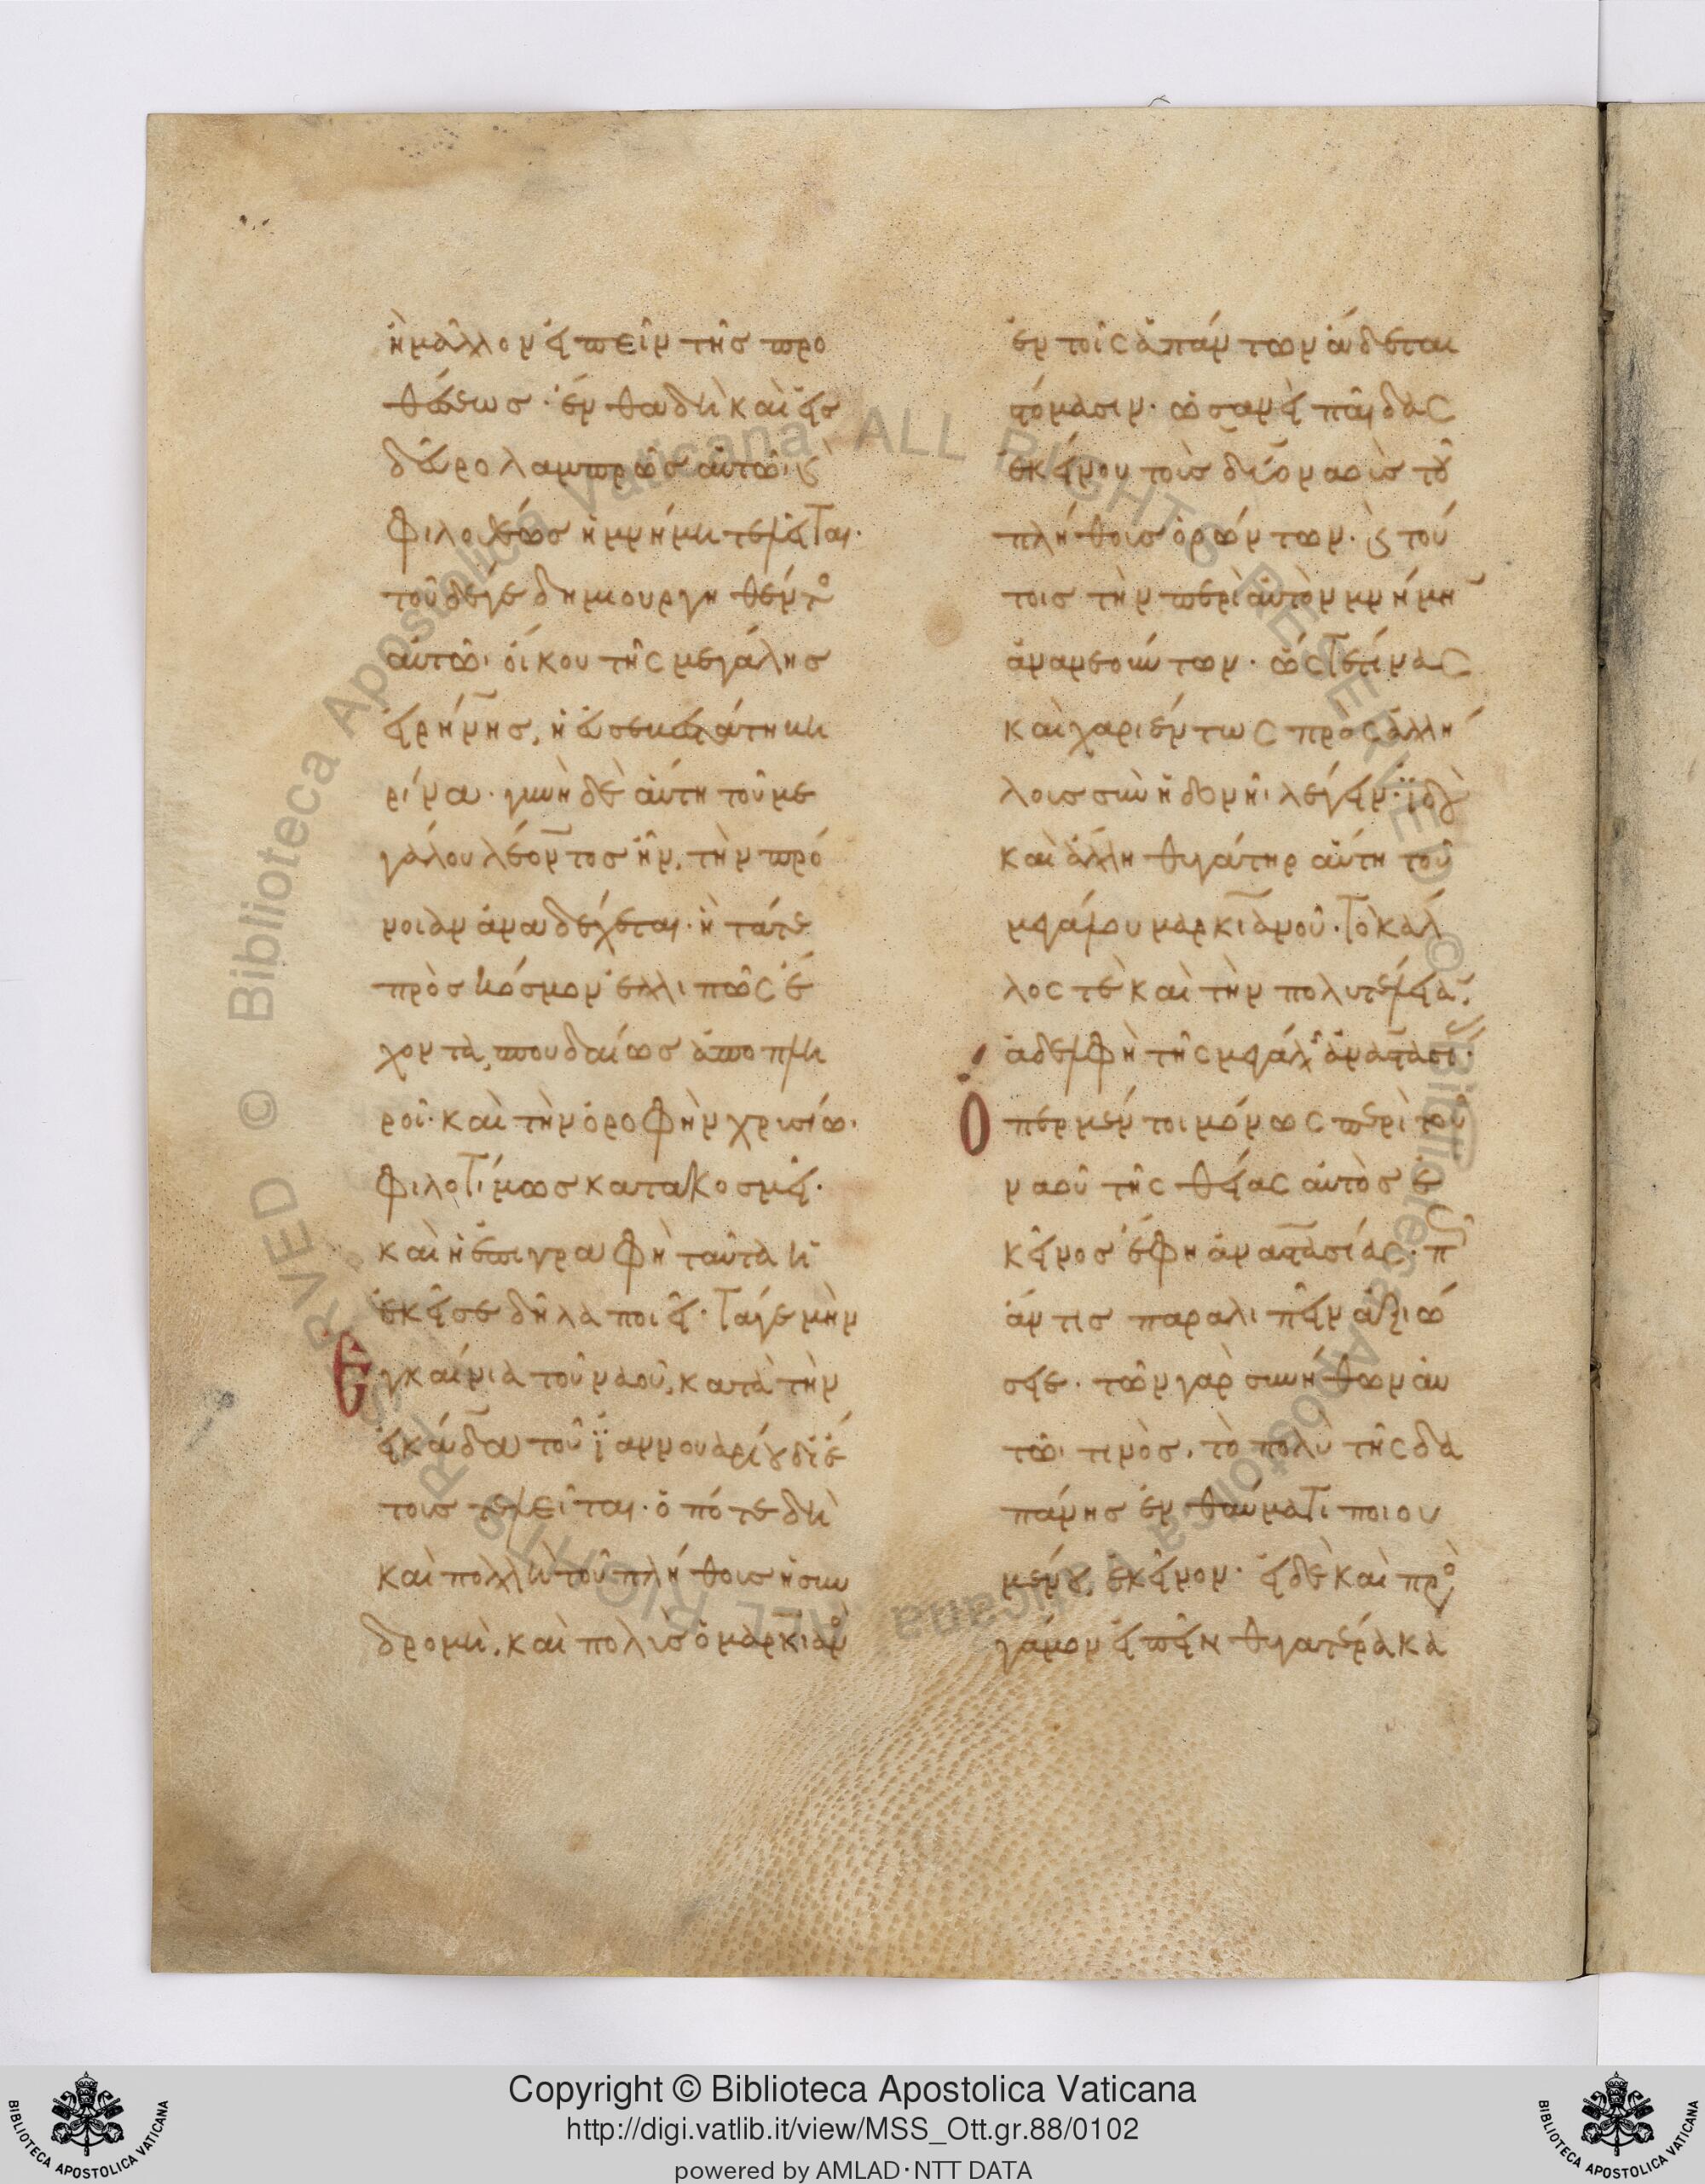 ἢ μᾶλλον εἰπεῖν τῆς προ
θέσεως· ἔνθα δὴ καὶ εἰς
δῶρο λαμπρῶς αὐτῶ· καὶ
φιλοικείως ἡ μνήμη τελεῖται·
τοῦ δέ γε δημιουργηθέντος
αὐτῶ· οἴκου τῆς μεγάλης
εἰρήνης, ἡ
ρίνα· γυνὴ δὲ αὕτη τοῦ με
γάλου λέοντος ἦν, τὴν πρό
νοιαν ἀναδέχεται· ἣ τά τε
πρὸς κόσμον ἐλλιπῶς ἔ
χοντα, σπουδαίως ἀποπλη
ροῖ· καὶ τὴν ὀροφὴν χρυσίω·
φιλοτίμως κατακοσμεῖ·
καὶ ἡ ἐπιγραφὴ ταῦτα ἡ
ἐκεῖσε δῆλα ποιεῖ· τά γε μὴν
Ἐγκαίνια τοῦ ναοῦ, κατὰ τὴν
εἰκάδα τοῦ ἰαννουαρίου δι' ἔ
τους τελεῖται· ὁπότε δὴ
καὶ πολλὴ τοῦ πλήθους ἡ συν
δρομὴ, καὶ πολὺς ὁ μαρκιανὸς
ἐν τοῖς ἁπάντων ἄδεται
στόμασιν· ὡσανεὶ παῖδας
ἐκείνου τοὺς δύο ναοὺς τοῦ
πλήθους ὁρώντων· καὶ τού
τοις τὴν περὶ αὐτὸν μνήμην
ἀνανεούντων· ὥς τε τινας
καὶ χαριέντως πρὸς ἀλλή
λους σὺν ἡδονῆ· λέγειν· ἰδοὺ
καὶ ἄλλη θυγάτηρ αὕτη τοῦ
μεγάλου μαρκιανοῦ· τὸ κάλ
λος τὲ καὶ τὴν πολυτέλειαν,
ἀδελφὴ τῆς μεγάλης ἀναστασίας·
Ὅπερ μέντοι μόνως περὶ τοῦ
ναοῦ τῆς θείας αὐτὸς ἐ
κεῖνος ἔφη ἀναστασίας·
ἄν τις παραλιπεῖν ἀξιώ
σειε· τῶν γὰρ συνήθων αὐ
τῶ· τινὸς, τὸ πολὺ τῆς δα
πάνης ἐν θαύματι ποιου
μένου, ἐκεῖνον· εἰ δὲ καὶ πρὸς
γάμον εἰπεῖν θυγατέρα κα
Copyright © Biblioteca Apostolica Vaticana
http://digi.vatlib.it/view/MSS_Ott.gr.88/0102
powered by AMLAD·NTT DATA
BIBLIOTECA APOSTOLICA VATICANA
BIBLIOTECA APOSTOLICA VATICANA